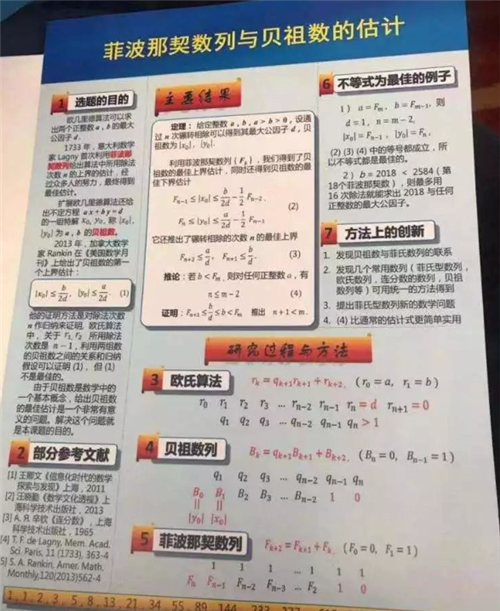 菲波那契数列与贝祖数的估计
1 选题的目的
欧几里德算法可以求
出两个正整数 a, b 的最大
公因子 d。
1733 年,意大利数学
家 Lagny 首次利用菲波那
契数列给出算法中所用除法
次数 n 的上界的估计,经
过众多人的努力,最终得到
最佳估计。
扩展欧几里德算法还给
出不定方程 ax + by = d
的一组特解 x₀, y₀, 称 |x₀|,
|y₀| 为 a, b 的贝祖数。
2013 年,加拿大数学
家 Rankin 在《美国数学月
刊》上给出了贝祖数的第一
个上界估计:
|x₀| ≤ b/2d, |y₀| ≤ a/2d (1)
他的证明方法是对除法次数
n 作归纳来证明. 欧氏算法
中,关于 r₁, r₂ 所用除法
次数是 n − 1, 利用两组数
的贝祖数之间的关系和归纳
假设可以证明 (1), 但 (1)
不是最佳的。
由于贝祖数是数学中的
一个基本概念,给出贝祖数
的最佳估计是一个非常有意
义的问题。解决这个问题就
是本课题的目的。
2 部分参考文献
[2] 汪晓勤《数学文化透视》上
海科学技术出版社,2013
[3] A. Я. 辛钦《连分数》,上海
科学技术出版社,1965
[4] T. F. de Lagny, Mem. Acad.
Sci. Paris, 11 (1733), 363-4
[5] S. A. Rankin, Amer. Math.
Monthly,120(2013)562-4
主要结果
定理:给定整数 a, b, a > b > 0, 设通
过 n 次辗转相除可以得到其最大公因子 d, 贝
祖数为 |x₀|, |y₀|.
利用菲波那契数列 {Fₖ}, 我们得到了贝
祖数的最佳上界估计,同时还得到贝祖数的最
佳下界估计
Fₙ₋₁ ≤ |x₀| ≤ b/2d − 1/2 Fₙ₋₂,
(2)
Fₙ ≤ |y₀| ≤ a/2d − 1/2 Fₙ₋₁.
它还推出了辗转相除的次数 n 的最佳上界
Fₙ₊₂ ≤ a/d, Fₙ₊₁ ≤ b/d. (3)
推论:若 b < Fₘ, 则对任何正整数 a, 有
n ≤ m − 2 (4)
证明:Fₙ₊₁ ≤ b/d ≤ b < Fₘ 推出 n + 1 < m.
研究过程与方法
3 欧氏算法 rₖ = qₖ₊₁rₖ₊₁ + rₖ₊₂, (r₀ = a, r₁ = b)
r₀ r₁ r₂ r₃ ... rₙ₋₂ rₙ₋₁ rₙ = d rₙ₊₁ = 0
q₁ q₂ q₃ ... qₙ₋₂ qₙ₋₁ qₙ > 1
4 贝祖数列 Bₖ = qₖ₊₁Bₖ₊₁ + Bₖ₊₂, (Bₙ = 0, Bₙ₋₁ = 1)
q₁ q₂ q₃ ... qₙ₋₂ qₙ₋₁ qₙ
B₀ B₁ B₂ B₃ ... Bₙ₋₂ 1 0
|| ||
|y₀| |x₀|
5 菲波那契数列 Fₖ₊₂ = Fₖ₊₁ + Fₖ (F₀ = 0, F₁ = 1)
1 1 1 ... 1 1 1
Fₙ Fₙ₋₁ Fₙ₋₂ Fₙ₋₃ ... F₂ 1 0
6 不等式为最佳的例子
1) a = Fₘ, b = Fₘ₋₁, 则
d = 1, n = m − 2,
|x₀| = Fₙ₋₁, |y₀| = Fₙ.
(2) (3) (4) 中的等号都成立,所
以不等式都是最佳的。
2) b = 2018 < 2584 (第
18个菲波那契数),则最多用
16 次除法就能求出 2018 与任何
正整数的最大公因子。
7 方法上的创新
1. 发现贝祖数与菲氏数列的联系
2. 发现几个常用数列(菲氏型数列,
欧氏数列,连分数的数列,贝祖
数列等)可用统一的方法得到
3. 提出菲氏型数列新的数学问题
4. (4) 比通常的估计式更简单实用
1, 1, 2, 3, 5, 8, 13, 21, 34, 55, 89, 144, 233